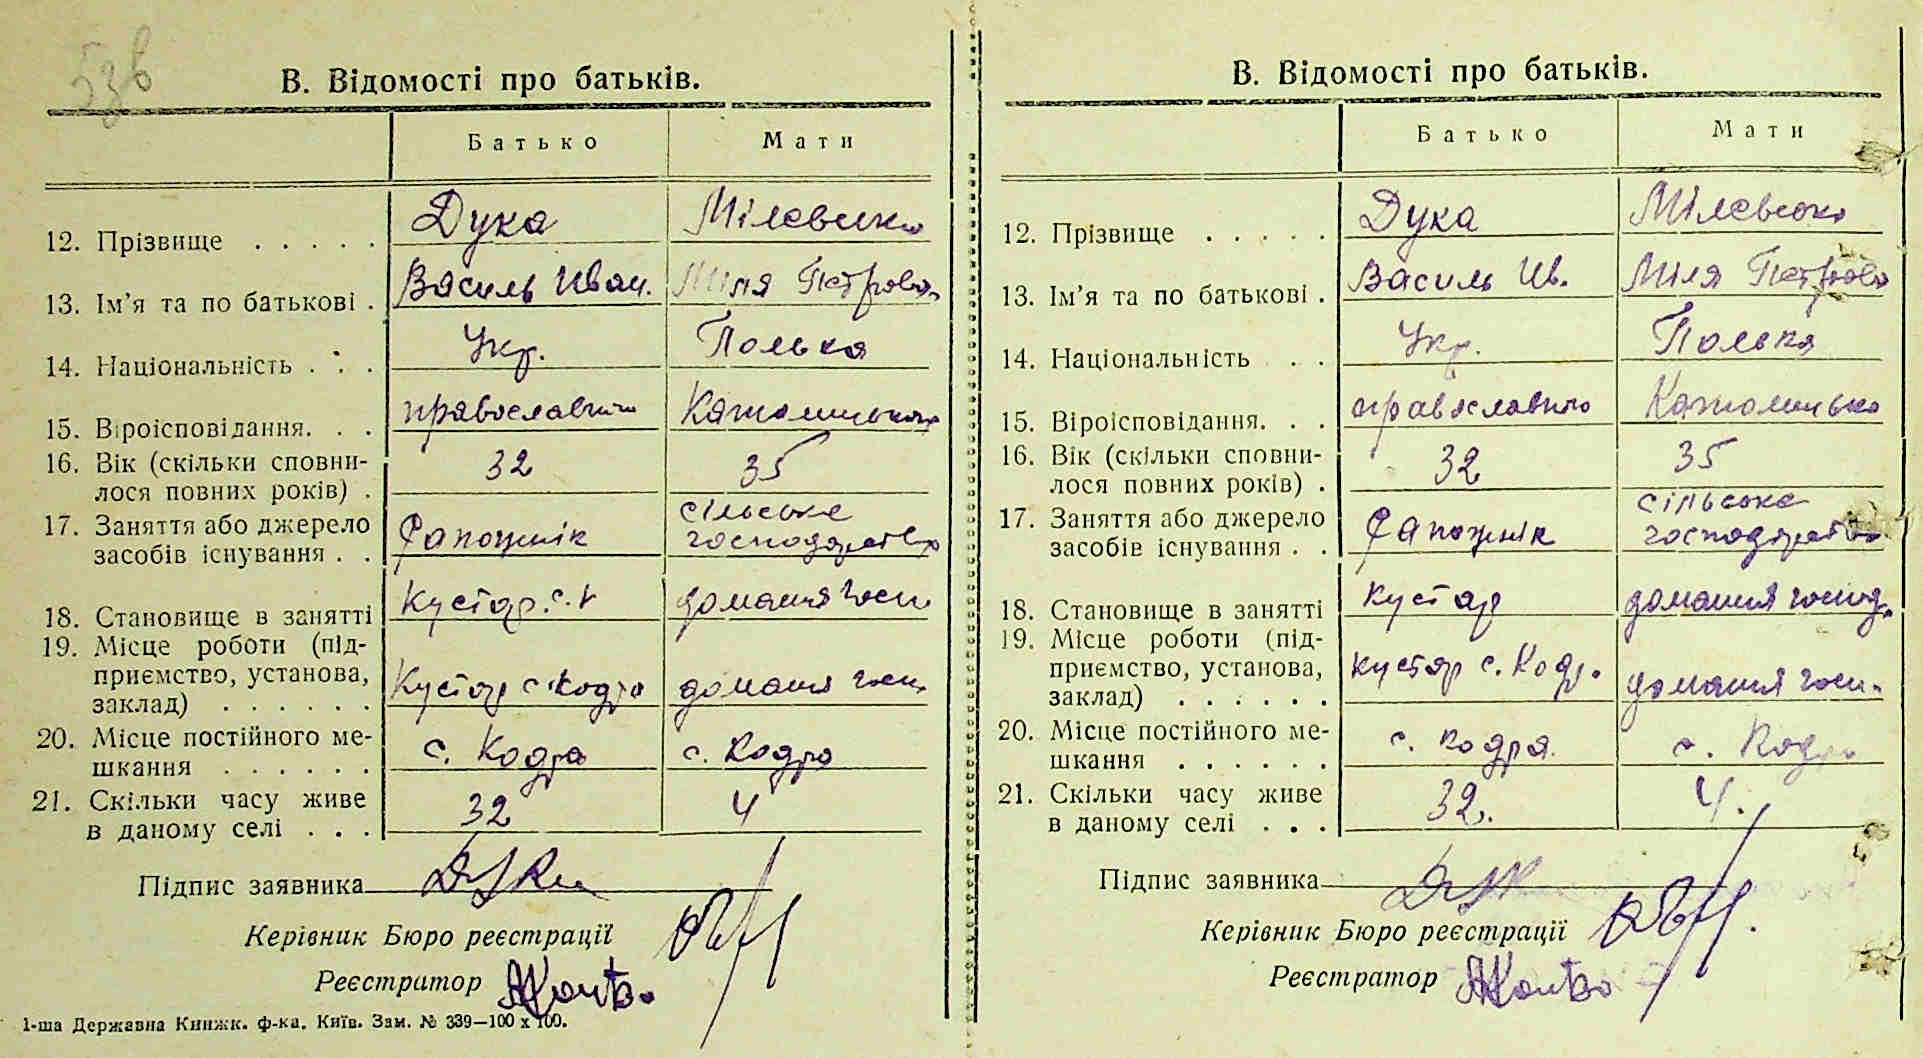 53в
В. Відомості про батьків.
Батько Мати
12. Прізвище . . . . . Дука Мілевська
13. Ім'я та по батькові . Василь Иван. Міля Петрово
14. Національність . . . Укр. Полька
15. Віроісповідання. . . православний Католицько
16. Вік (скільки сповни-
лося повних років) . 32 35
17. Заняття або джерело сільське
засобів існування . . Сапожнік господарство
18. Становище в занятті Кустар домашня госп
19. Місце роботи (під-
приємство, установа,
заклад) . . . . . . Кустар с. Кодра домашня госп.
20. Місце постійного ме-
шкання . . . . . . с. Кодра с. Кодра
21. Скільки часу живе
в даному селі . . . 32 4
Підпис заявника Дука
Керівник Бюро реєстрації
Реєстратор
1-ша Державна Книжк. ф-ка. Київ. Зам. № 339—100 x 100.
В. Відомості про батьків.
Батько Мати
12. Прізвище . . . . . Дука Мілевсько
13. Ім'я та по батькові . Василь Ив. Міля Петрово
14. Національність . . Укр. Полька
15. Віроісповідання. . . православно Католицько
16. Вік (скільки сповни-
лося повних років) . 32 35
17. Заняття або джерело сільське
засобів існування . . Сапожнік господарство
18. Становище в занятті Кустар домашня господ.
19. Місце роботи (під-
приємство, установа,
заклад) . . . . . . кустар с. Кодр. домашня госп.
20. Місце постійного ме-
шкання . . . . . . с. Кодра. с. Кодра
21. Скільки часу живе
в даному селі . . . 32. 4.
Підпис заявника
Керівник Бюро реєстрації
Реєстратор